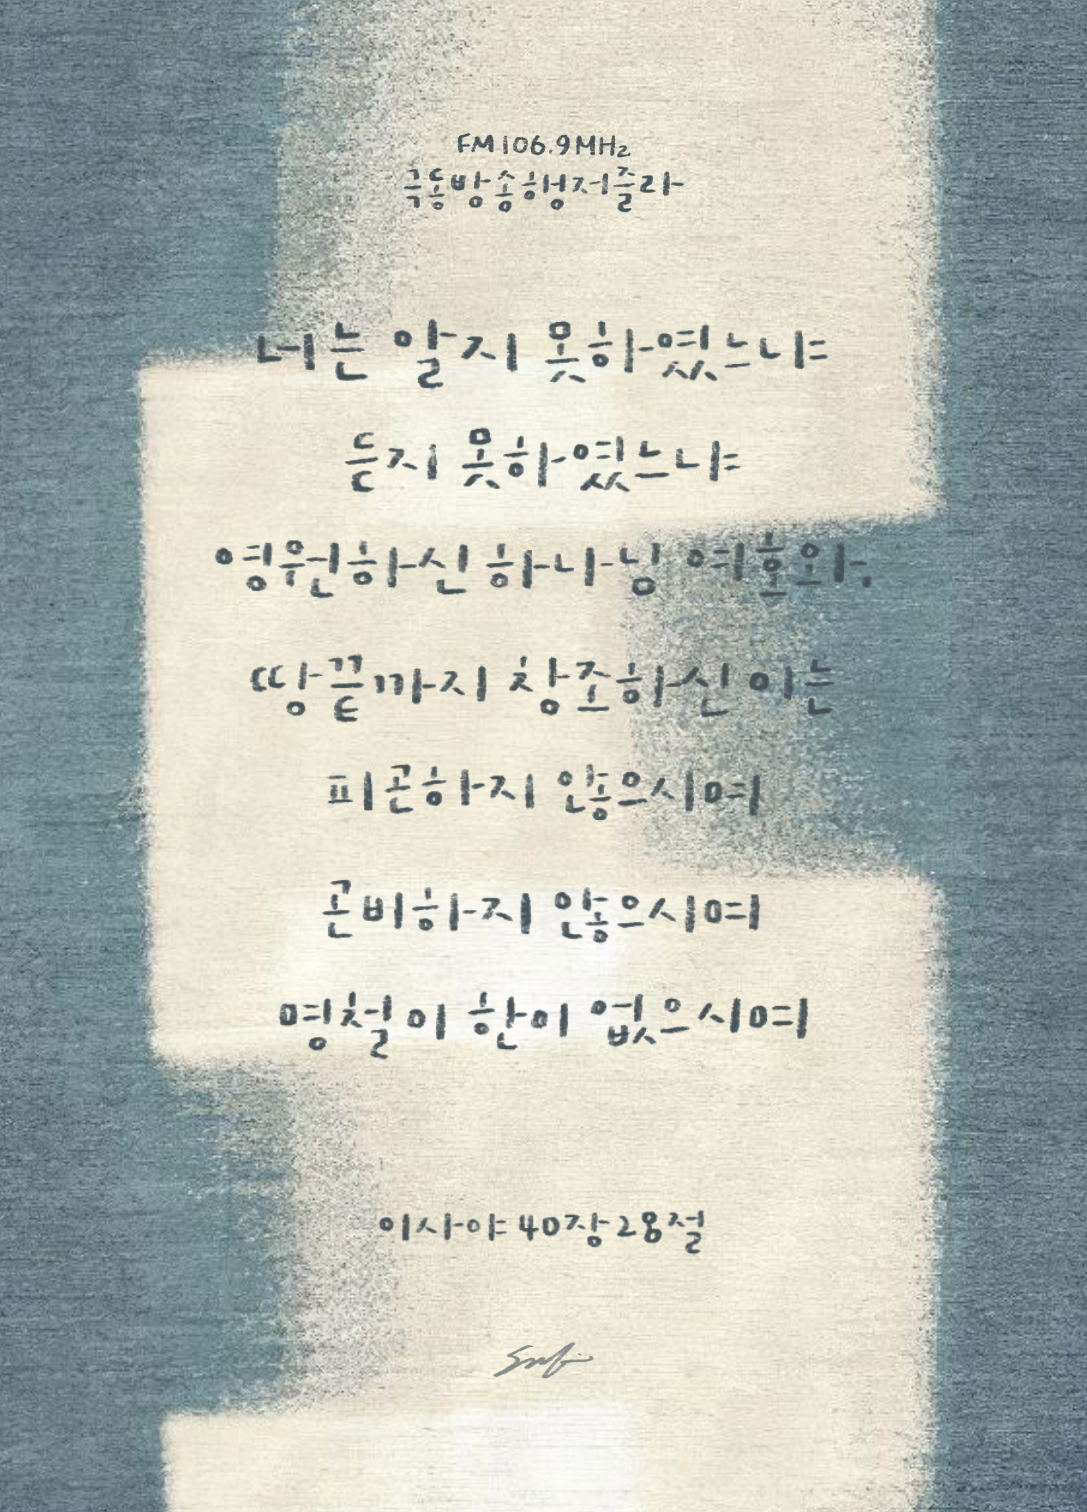 FM 106.9MHz
극동방송형저즐라
너는 알지 못하였느냐
듣지 못하였느냐
영원하신 하나님 여호와,
땅끝까지 창조하신 이는
피곤하지 않으시며
곤비하지 않으시며
명철이 한이 없으시며
이사야 40장 28절